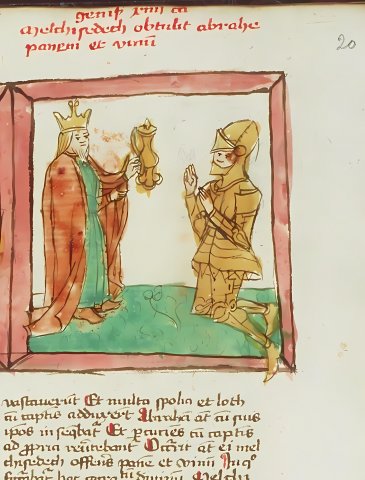 genis xiiii ca
Melchisedech obtulit abrahe
panem et vinum
20
vastaverut Et multa spolia et loth
cu captis adduxert Abraha at cu suis
ipos inseqbat Et pcuties cu captis
ad ppria revertebant Occrit at ei mel
chisedech offerens pane et vinu